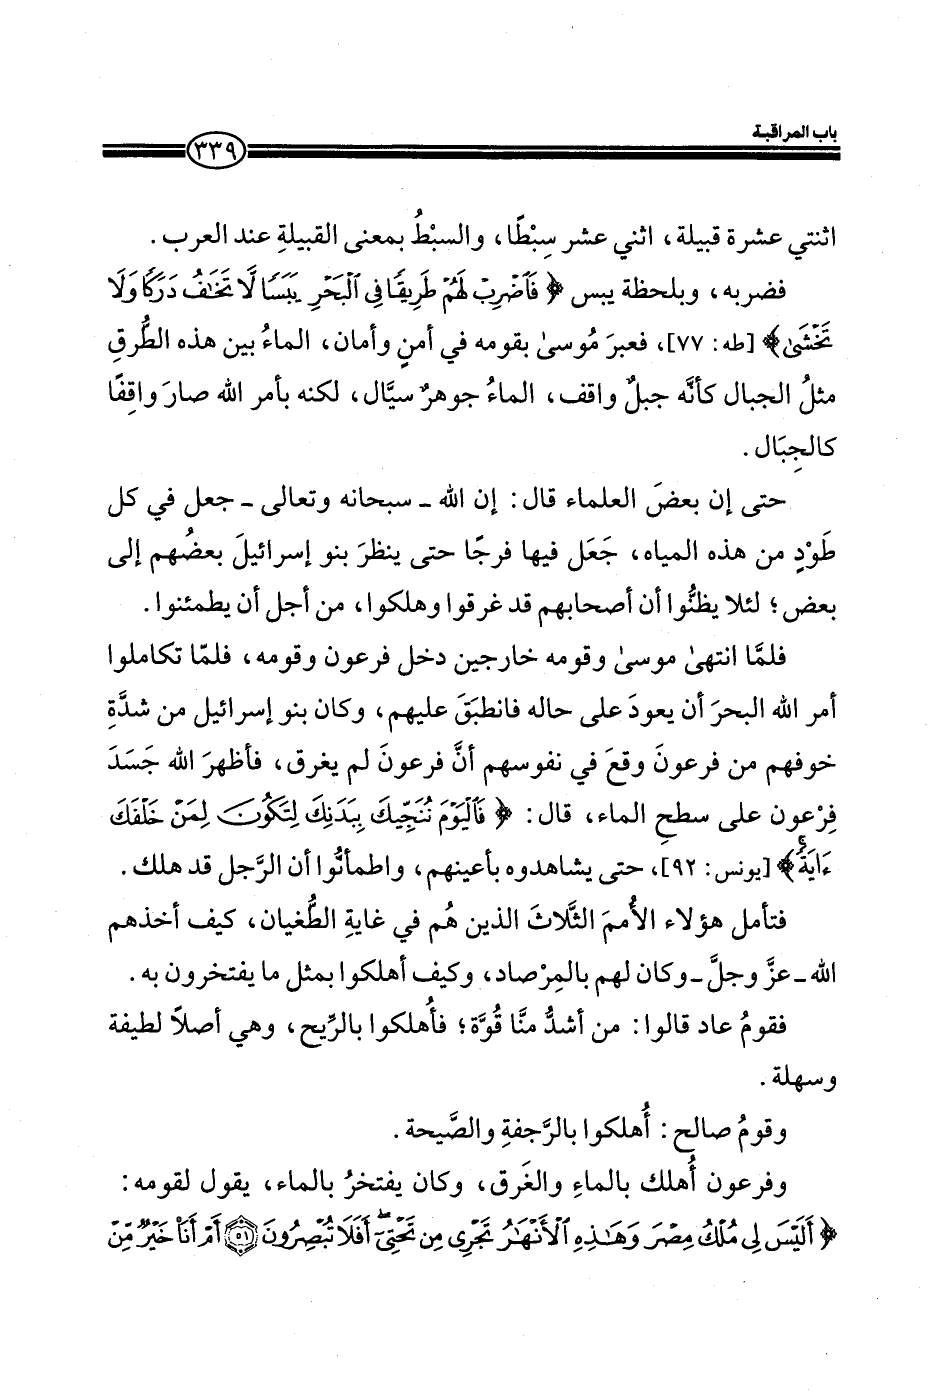 باب المراقبة
٣٣٩
اثنتي عشرة قبيلة، اثني عشر سِبْطًا، والسبْطُ بمعنى القبيلةِ عند العرب.
فضربه، وبلحظة يبس ﴿ فَٱضۡرِبۡ لَهُمۡ طَرِيقٗا فِي ٱلۡبَحۡرِ يَبَسٗا لَّا تَخَٰفُ دَرَكٗا وَلَا
تَخۡشَىٰ﴾ [طه: ٧٧]، فعبرَ مُوسىٰ بقومه في أمنٍ وأمان، الماءُ بين هذه الطُّرقِ
مثلُ الجبال كأنَّه جبلٌ واقف، الماءُ جوهرٌ سيَّال، لكنه بأمر الله صارَ واقِفًا
كالجِبَال.
حتى إن بعضَ العلماء قال: إن الله ـ سبحانه وتعالى ـ جعل في كل
طَوْدٍ من هذه المياه، جَعَل فيها فرجًا حتى ينظرَ بنو إسرائيلَ بعضُهم إلى
بعض؛ لئلا يظنُّوا أن أصحابهم قد غرقوا وهلكوا، من أجل أن يطمئنوا.
فلمَّا انتهىٰ موسىٰ وقومه خارجين دخل فرعون وقومه، فلمّا تكاملوا
أمر الله البحرَ أن يعودَ على حاله فانطبَقَ عليهم، وكان بنو إسرائيل من شدَّةِ
خوفهم من فرعونَ وقعَ في نفوسهم أنَّ فرعونَ لم يغرق، فأظهرَ الله جَسَدَ
فِرْعون على سطحِ الماء، قال: ﴿ فَٱلۡيَوۡمَ نُنَجِّيكَ بِبَدَنِكَ لِتَكُونَ لِمَنۡ خَلۡفَكَ
ءَايَةٗۚ﴾ [يونس: ٩٢]، حتى يشاهدوه بأعينهم، واطمأنُّوا أن الرَّجل قد هلك.
فتأمل هؤلاء الأُممَ الثَّلاثَ الذين هُم في غايةِ الطُّغيان، كيف أخذهم
الله ـ عزَّ وجلَّ ـ وكان لهم بالمِرْصاد، وكيف أهلكوا بمثل ما يفتخرون به.
فقومُ عاد قالوا: من أشدُّ منَّا قُوَّة؛ فأُهلكوا بالرِّيح، وهي أصلاً لطيفة
وسهلة.
وقومُ صالحٍ: أُهلكوا بالرَّجفةِ والصَّيحة.
وفرعون أُهلك بالماءِ والغَرق، وكان يفتخرُ بالماء، يقول لقومه:
﴿ أَلَيۡسَ لِي مُلۡكُ مِصۡرَ وَهَٰذِهِ ٱلۡأَنۡهَٰرُ تَجۡرِي مِن تَحۡتِيٓۚ أَفَلَا تُبۡصِرُونَ ۝٥١ أَمۡ أَنَا۠ خَيۡرٞ مِّنۡ